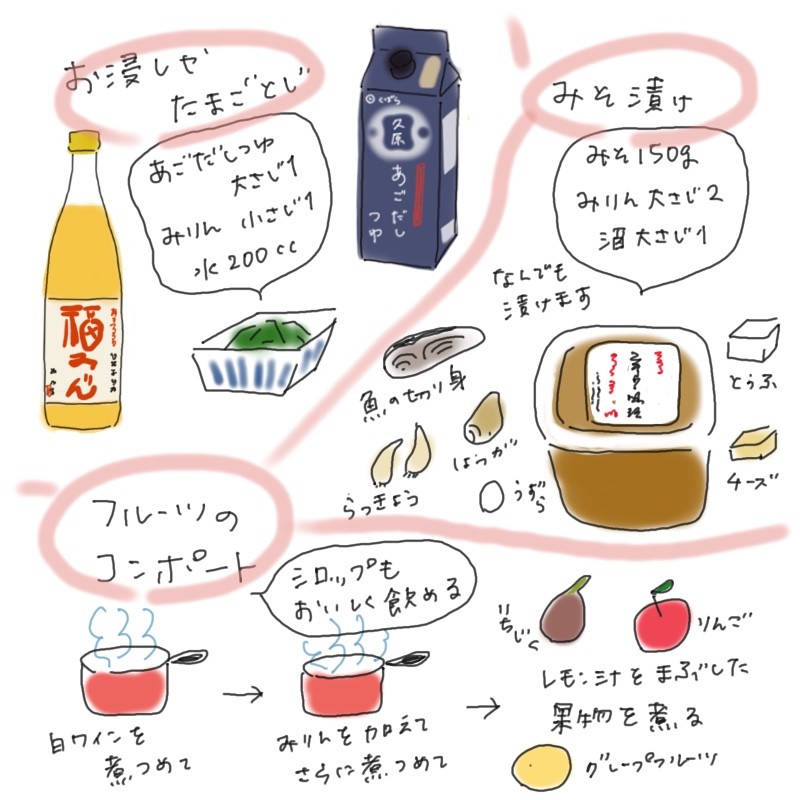 お浸しや
たまごとじ
あごだしつゆ
大さじ1
みりん 小さじ1
水200cc
福みりん
くばら
久原
あごだし
つゆ
みそ漬け
みそ150g
みりん大さじ2
酒大さじ1
なんでも
漬けます
魚の切り身
らっきょう
しょうが
うずら
とうふ
チーズ
フルーツの
コンポート
シロップも
おいしく飲める
白ワインを
煮つめて
みりんを加えて
さらに煮つめて
いちじく
りんご
レモン汁をまぶした
果物を煮る
グレープフルーツ